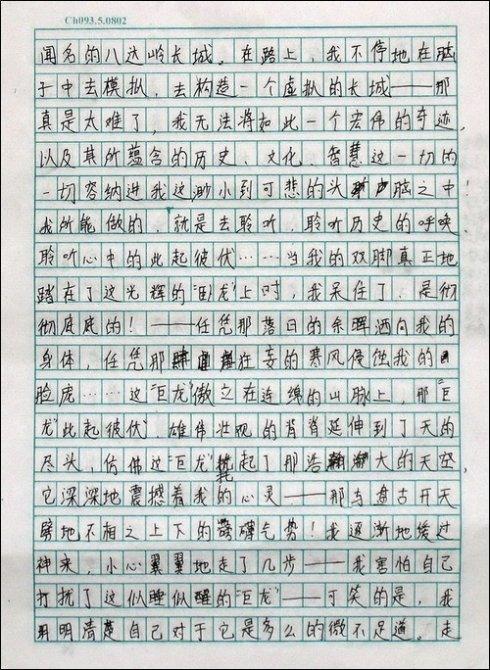 Ch093.5.0802
闻名的八达岭长城。在路上，我不停地在脑
子中去模拟，去构造一个虚拟的长城——那
真是太难了，我无法将如此一个宏伟的奇迹，
以及其所蕴含的历史、文化、智慧这一切的
一切容纳进我这渺小到可悲的头脑之中！
我所能做的，就是去聆听，聆听历史的呼唤，
聆听心中的此起彼伏……当我的双脚真正地
踏在了这光辉的“卧龙”上时，我呆住了，是彻
彻底底的！——任凭那落日的余晖洒向我的
身体，任凭那狂妄的寒风侵蚀我的
脸庞……这“巨龙”傲立在连绵的山脉上，那“巨
龙”此起彼伏，雄伟壮观的背脊延伸到了天的
尽头，仿佛这“巨龙”托起了那浩瀚大的天空，
它深深地震撼着我的心灵——那与盘古开天
劈地不相之上下的磅礴气势！我逐渐地缓过
神来，小心翼翼地走了几步——我害怕自己
打扰了这似睡似醒的“巨龙”——可笑的是，我
明明清楚自己对于它是多么的微不足道。走